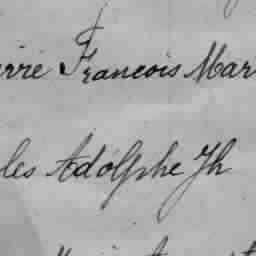 rre François Mar
les Adolphe Jh